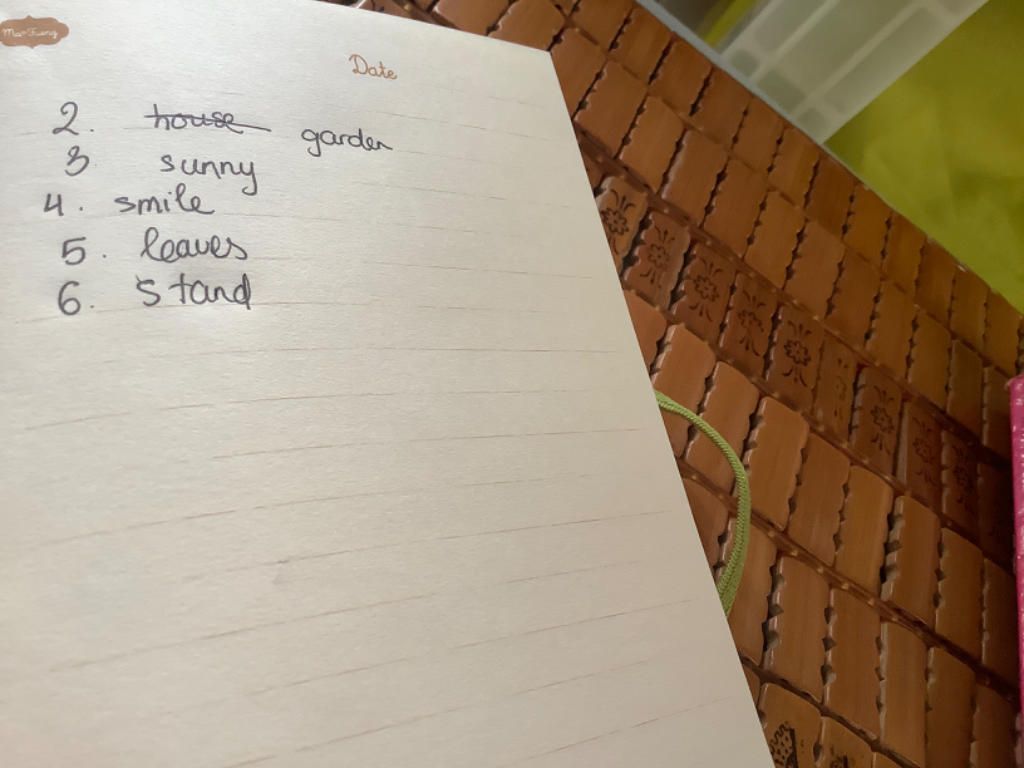 Mao Fueng
Date
2. house garden
3 sunny
4. smile
5. leaves
6. stand